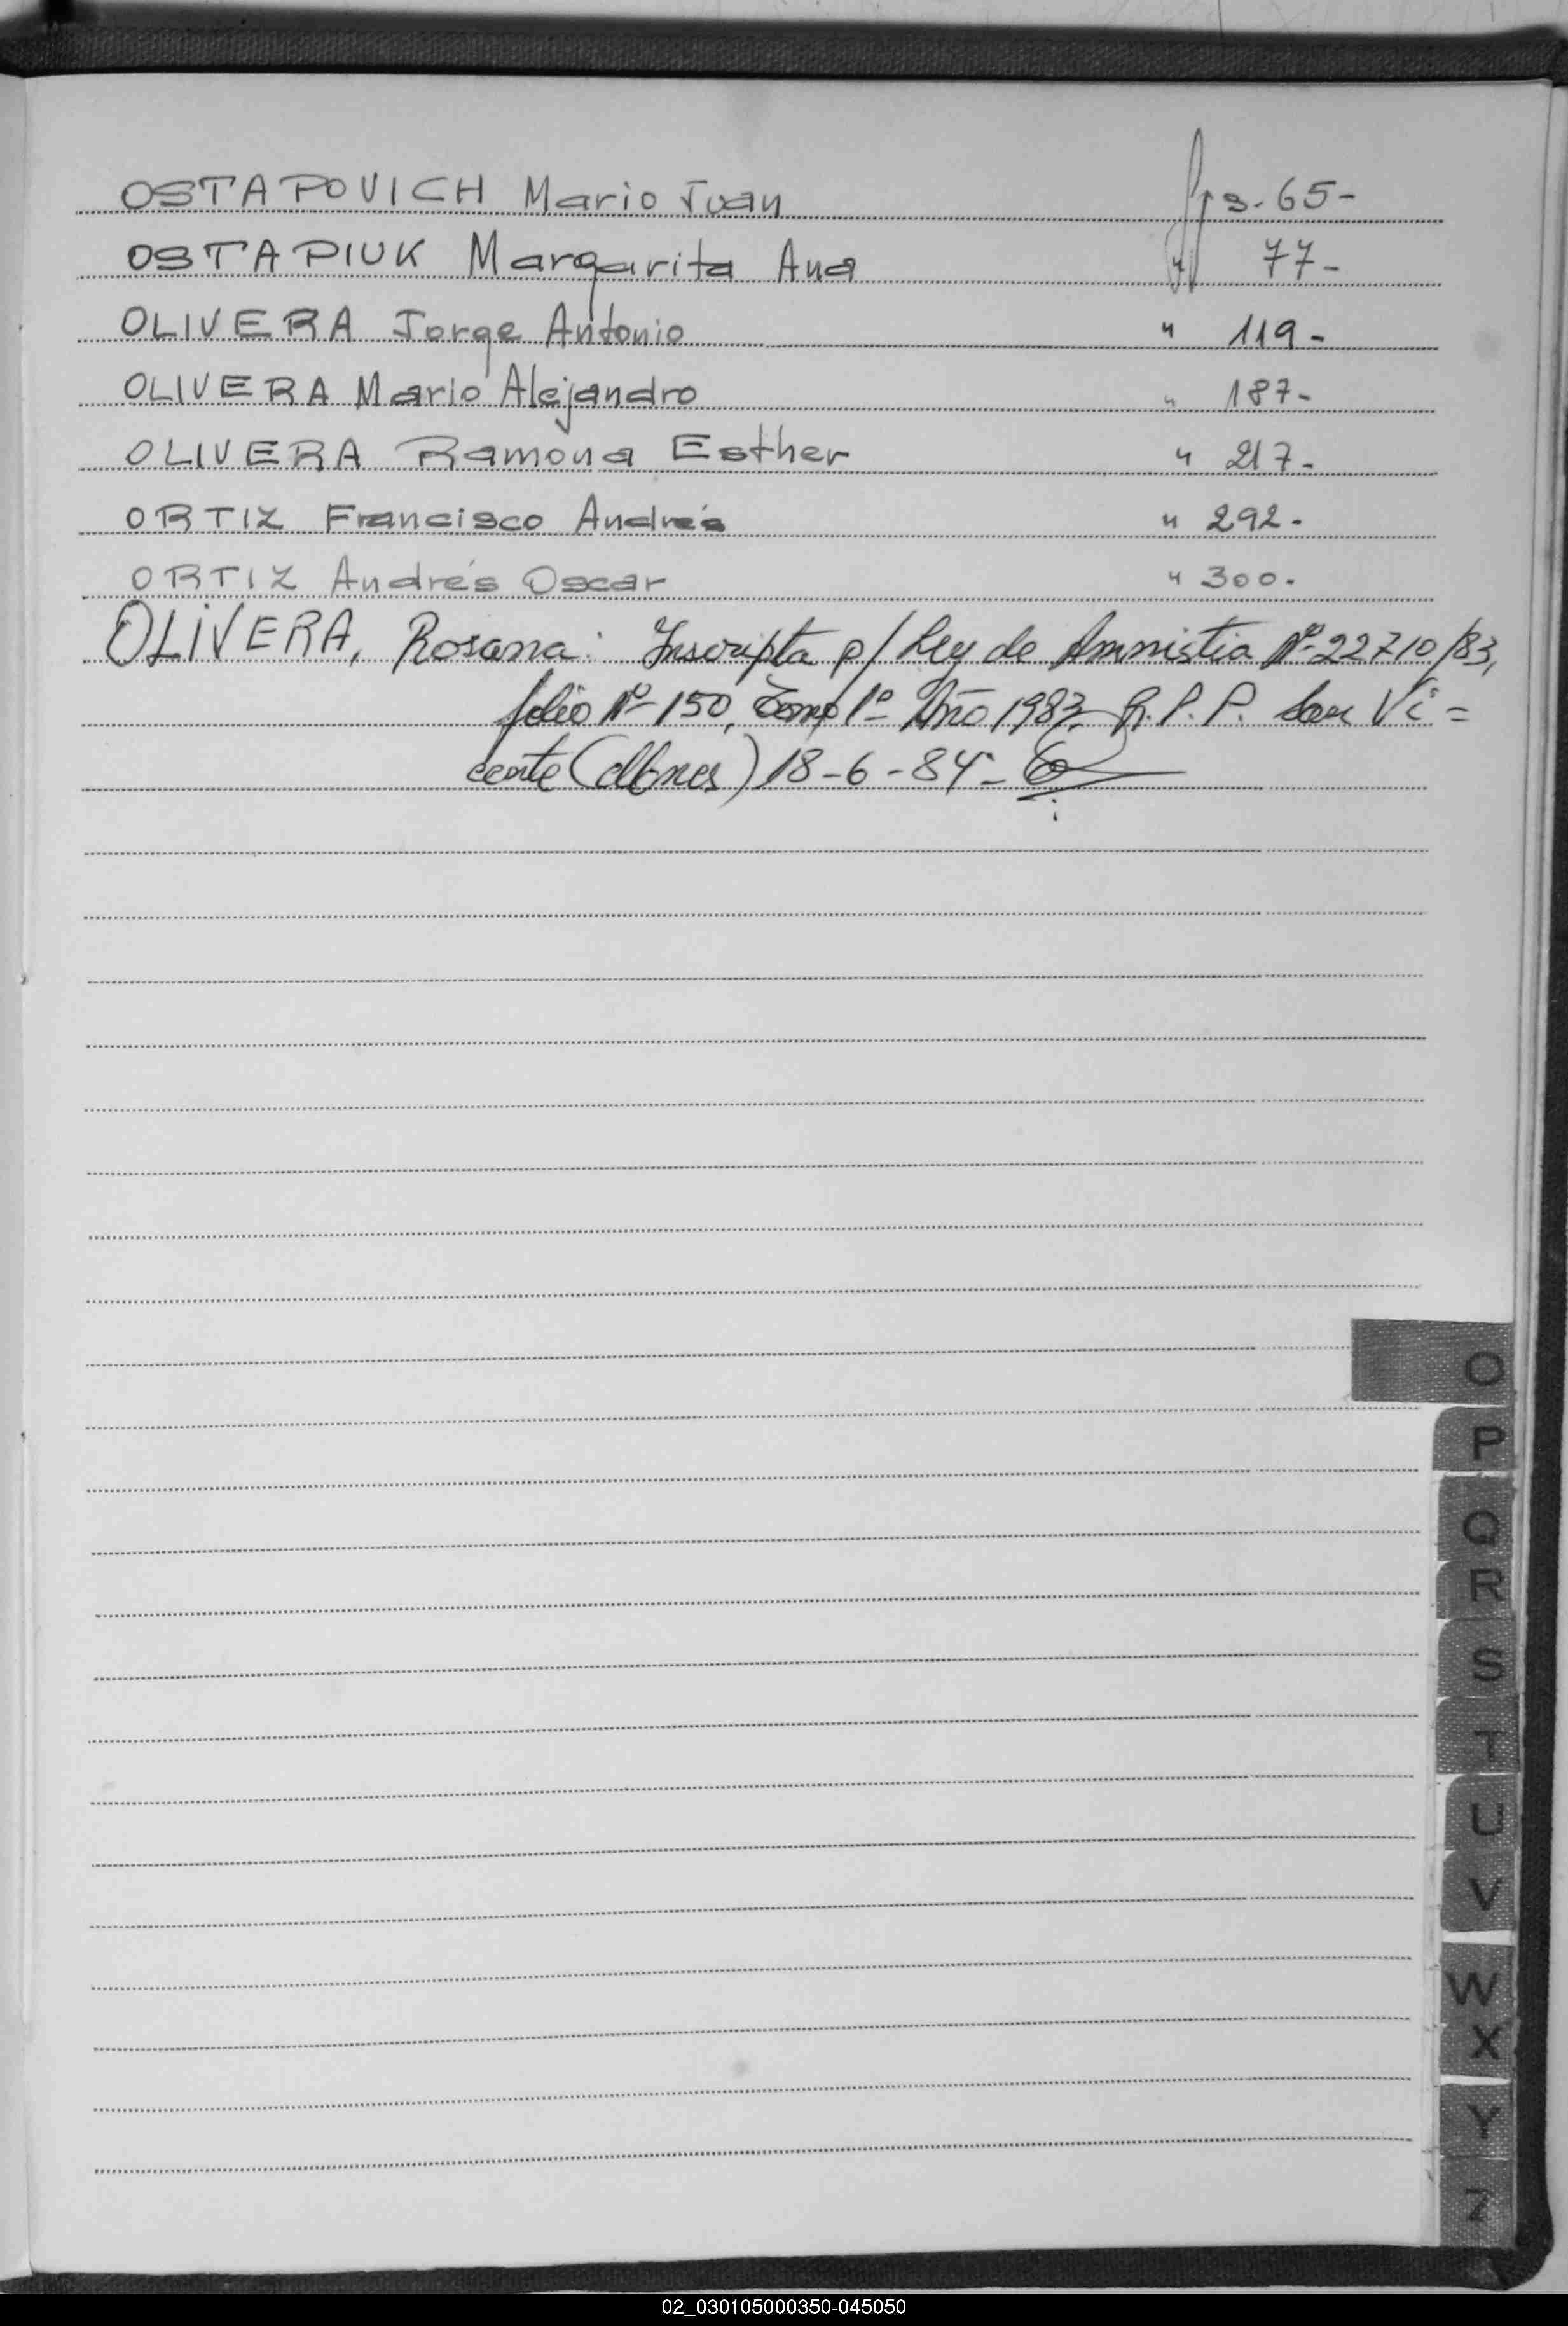 OSTAPOVICH Mario Juan fs. 65-
OSTAPIUK Margarita Ana " 77-
OLIVERA Jorge Antonio " 119-
OLIVERA Mario Alejandro " 187-
OLIVERA Ramona Esther " 217-
ORTIZ Francisco Andrés " 292-
ORTIZ Andrés Oscar " 300-
OLIVERA, Rosana: Inscripta p/ Ley de Amnistia Nº 22710/83,
folio Nº 150, Tomo 1º Año 1983 R.P.P. San Vi=
cente (Mnes) 18-6-84-
O
P
Q
R
S
T
U
V
W
X
Y
Z
02_030105000350-045050